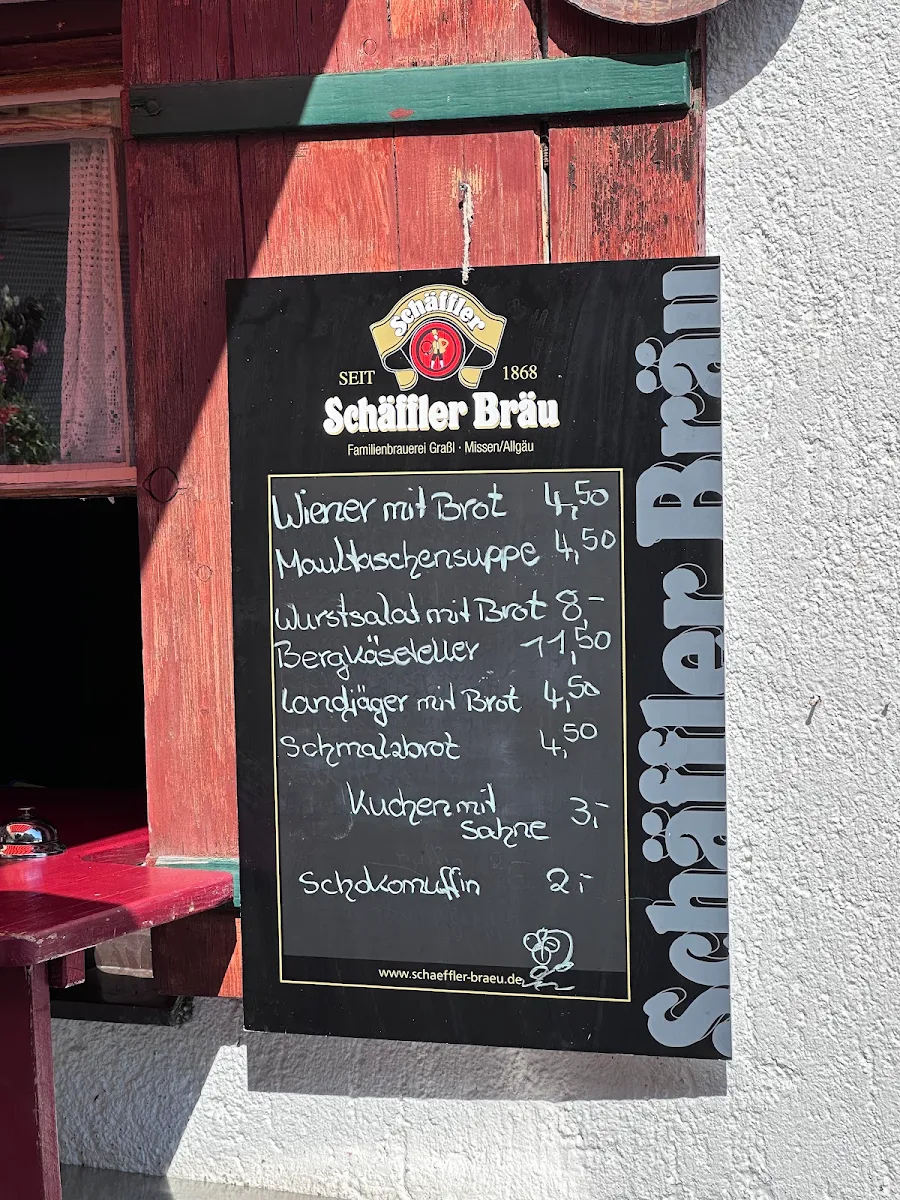 Schäffler
SEIT 1868
Schäffler Bräu
Familienbrauerei Graßl · Missen/Allgäu
Wiener mit Brot 4,50
Maultaschensuppe 4,50
Wurstsalat mit Brot 8,-
Bergkäseteller 11,50
Landjäger mit Brot 4,50
Schmalzbrot 4,50
Kuchen mit
Sahne 3,-
Schokomuffin 2,-
www.schaeffler-braeu.de
Schäffler Bräu